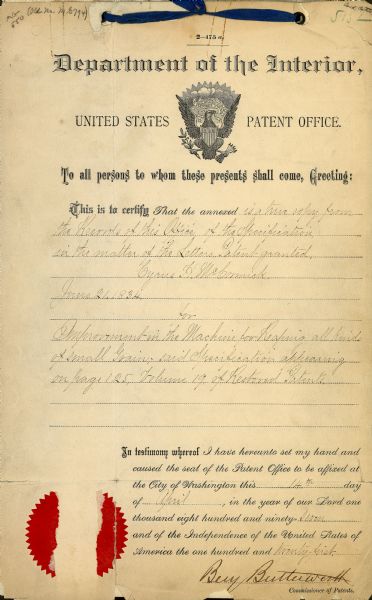 2-175 a.
Department of the Interior,
UNITED STATES PATENT OFFICE.
To all persons to whom these presents shall come, Greeting:
This is to certify That the annexed is a true copy from
the Records of this Office of the Specification
in the matter of the Letters Patent granted
Cyrus H. McCormick
June 21, 1834
for
Improvement in the Machine for Reaping all kinds
of Small Grain, said Specification appearing
on page 125, Volume 19, of Restored Patents.
In testimony whereof I have hereunto set my hand and
caused the seal of the Patent Office to be affixed at
the City of Washington this 14th day
of April, in the year of our Lord one
thousand eight hundred and ninety-seven
and of the Independence of the United States of
America the one hundred and twenty-first.
Benj Butterworth
Commissioner of Patents.